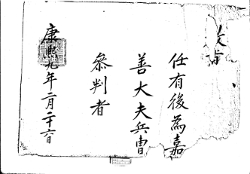 旨
任有後為嘉
善大夫兵曹
叅判者
康熙九年二月二十六